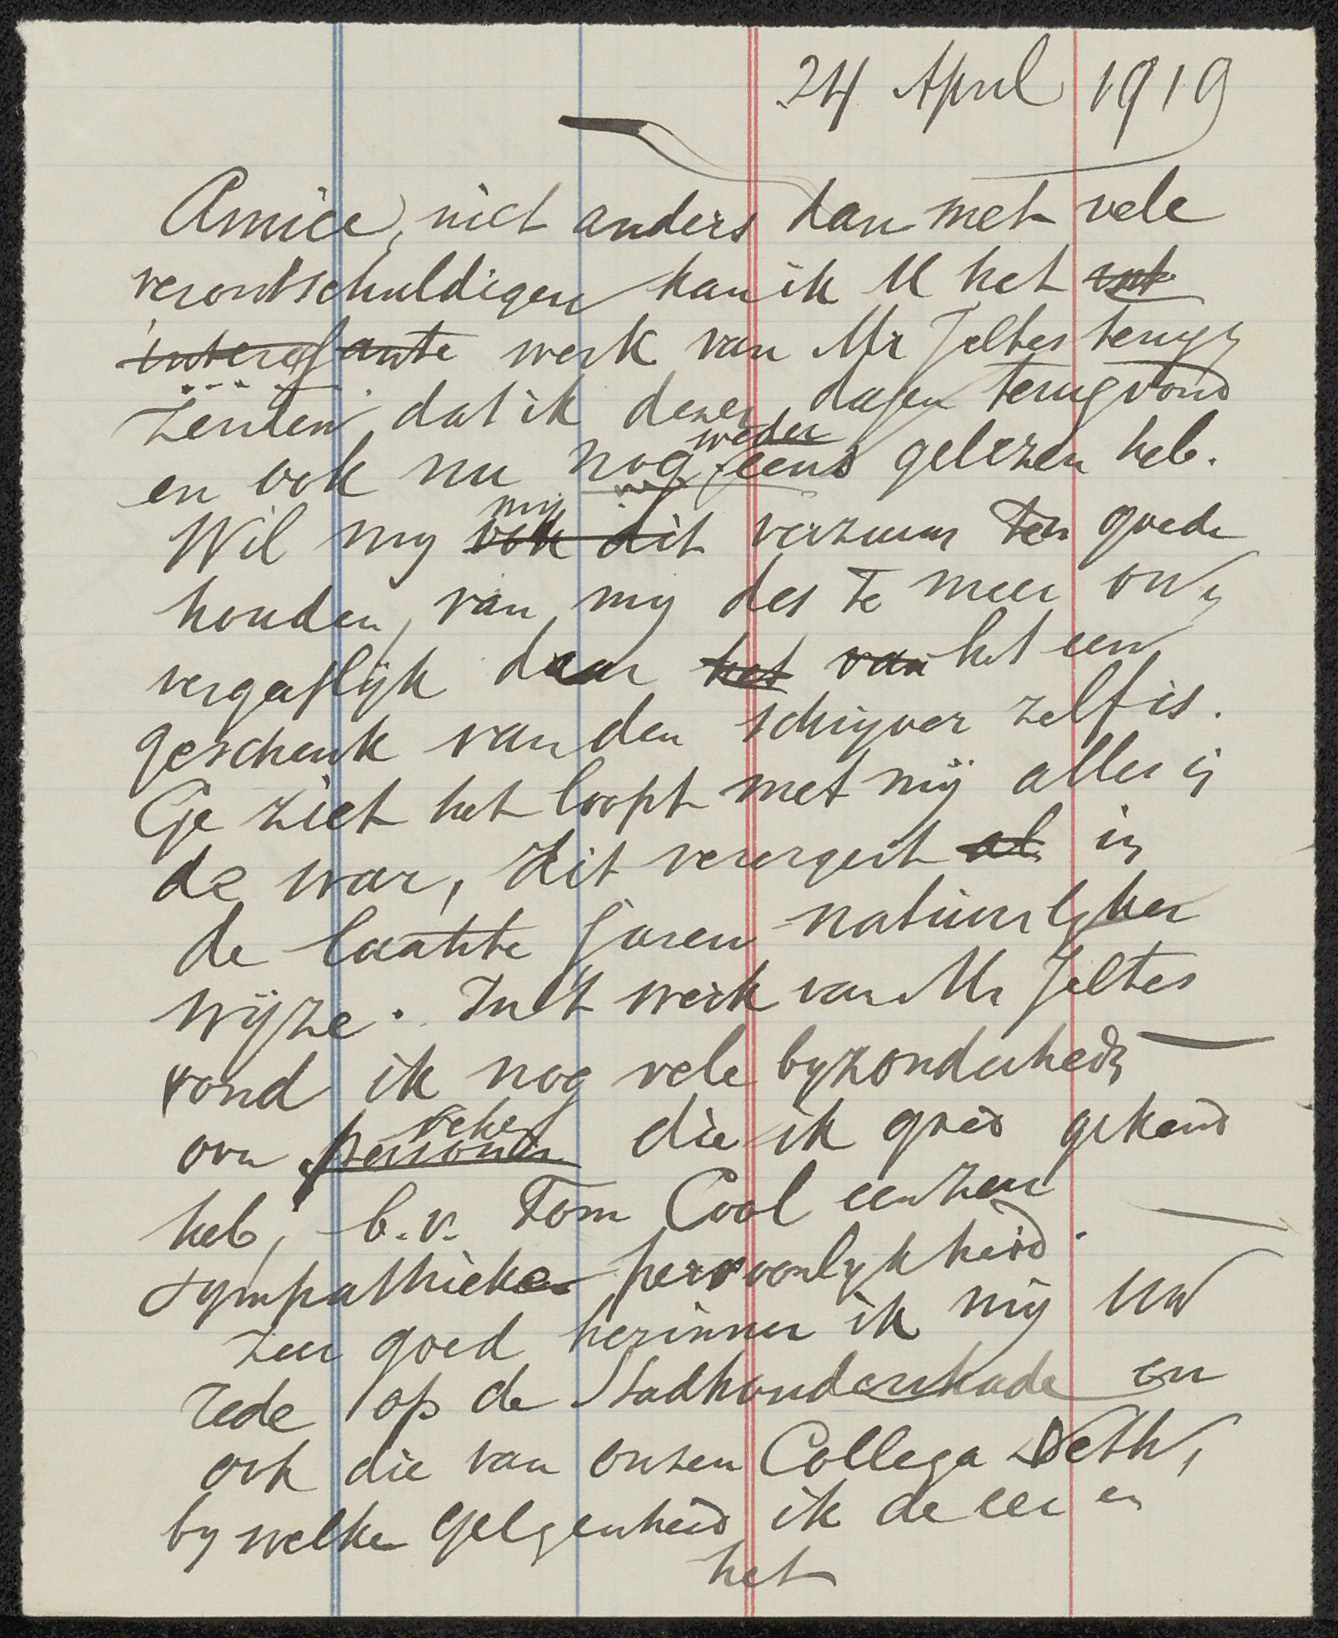 24 April 1919
Amice, niet anders dan met vele
verontschuldigen kan ik U het
interessante werk van Mr Jeltes terug
zenden dat ik dezer dagen terugvond
weder
en ook nu nog eens gelezen heb.
mijn
Wil my ook dit verzuim ten goede
houden, van my des te meer on
vergeeflijk daar het van het een
geschenk van den schrijver zelf is.
Ge ziet het loopt met mij alles in
de war, dit verergert al in
de laatste jaren natuurlyker
wijze. In 't werk van Mr Jeltes
vond ik nog vele byzonderheden
over personen die ik goed gekend
heb, b.v. Tom Cool een zeer
sympathieke persoonlykheid.
Zeer goed herinner ik mij uw
rede op de Stadhouderskade en
ook die van onzen Collega Deth,
by welke gelegenheid ik de eer en
het